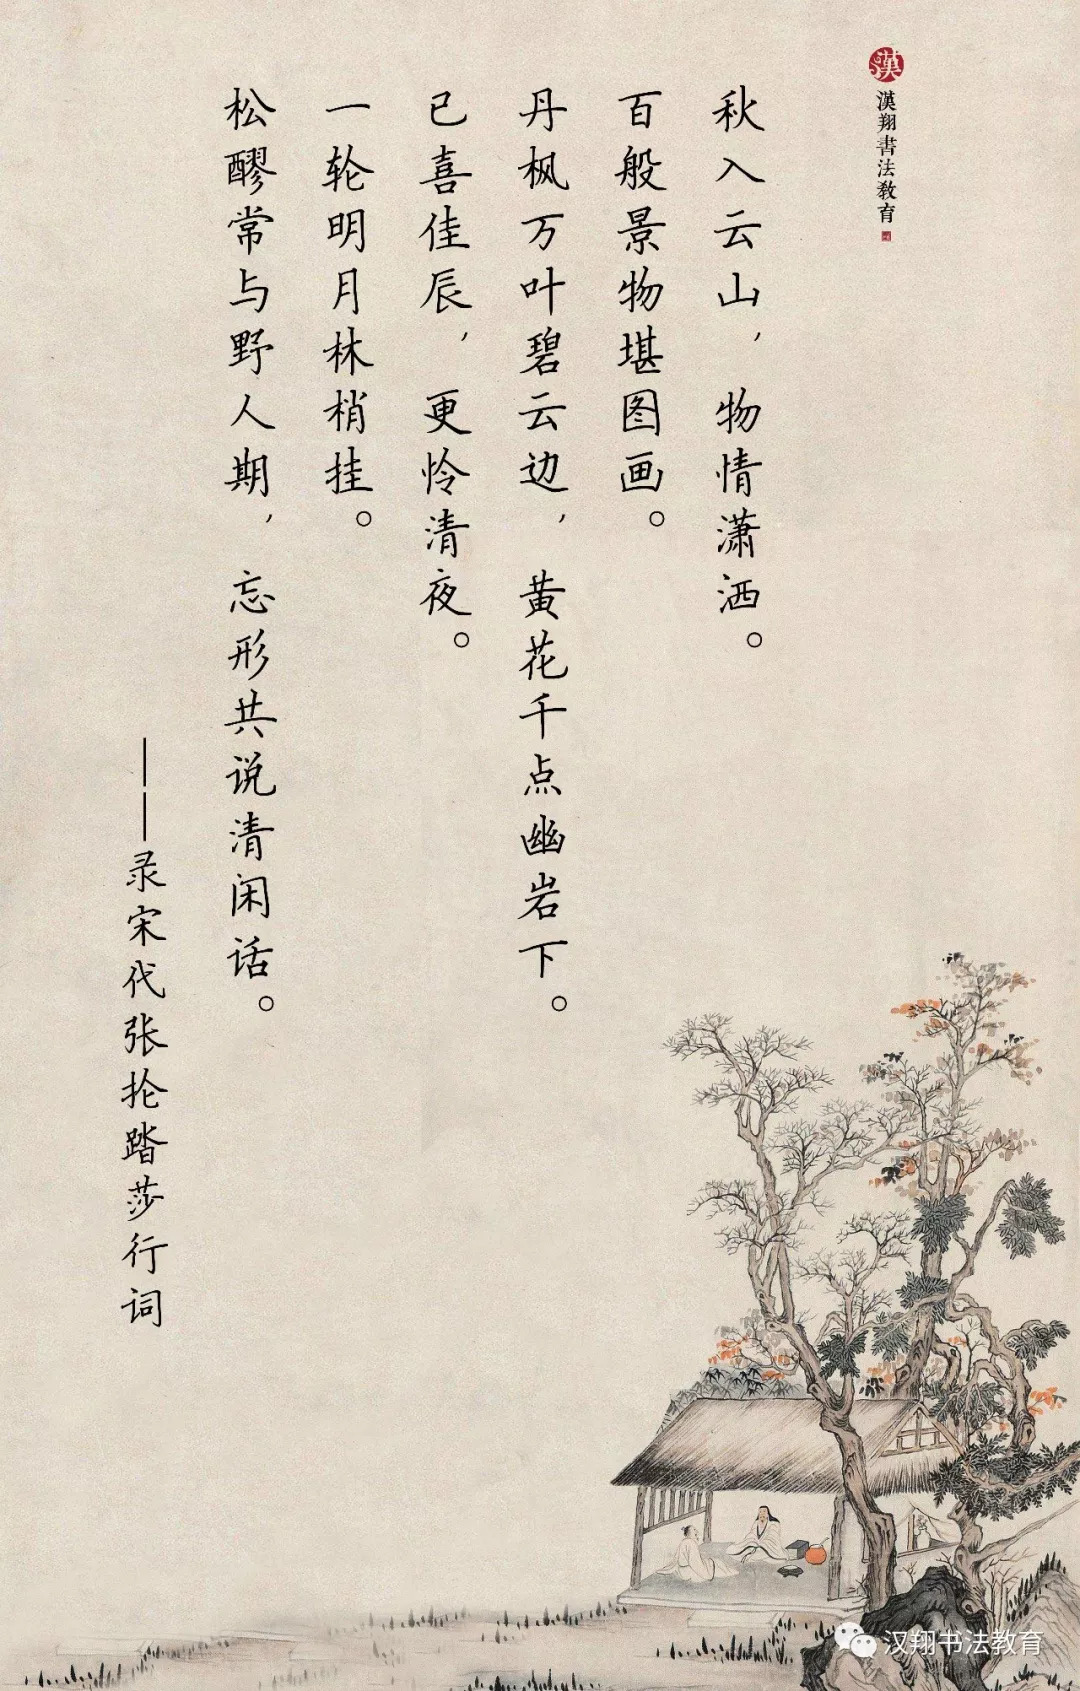 漢
漢翔書法教育
秋入云山，物情潇洒。
百般景物堪图画。
丹枫万叶碧云边，黄花千点幽岩下。
已喜佳辰，更怜清夜。
一轮明月林梢挂。
松醪常与野人期，忘形共说清闲话。
——录宋代张抡踏莎行词
汉翔书法教育